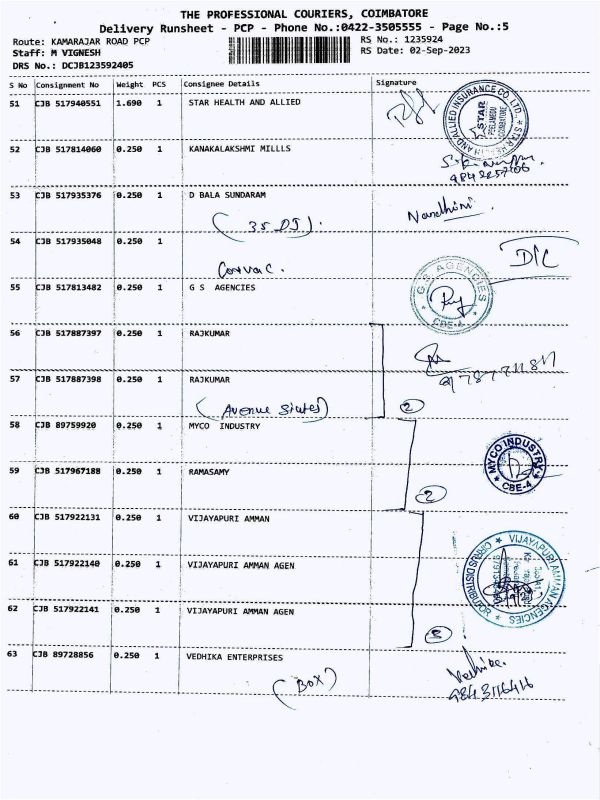 THE PROFESSIONAL COURIERS, COIMBATORE
Delivery Runsheet - PCP - Phone No.:0422-3505555 - Page No.:5
Route: KAMARAJAR ROAD PCP RS No.: 1235924
Staff: M VIGNESH RS Date: 02-Sep-2023
DRS No.: DCJB123592405
S No Consignment No Weight PCS Consignee Details Signature
51 CJB 517940551 1.690 1 STAR HEALTH AND ALLIED
STAR HEALTH AND ALLIED INSURANCE CO. LTD.
STAR
PEELAMEDU
COIMBATORE
52 CJB 517814060 0.250 1 KANAKALAKSHMI MILLLS
53 CJB 517935376 1 D BALA SUNDARAM
Nandhini
(35 DJ).
54 CJB 517935048 0.250 1
D/C
55 CJB 517813482 0.250 1 G S AGENCIES
G.S. AGENCIES
CBE-4
56 CJB 517887397 0.250 1 RAJKUMAR
57 CJB 517887398 0.250 1 RAJKUMAR
(Avenue States) 2
58 CJB 89759920 0.250 1 MYCO INDUSTRY
MYCO INDUSTRY
CBE-4
59 CJB 517967188 0.250 1 RAMASAMY
2
60 CJB 517922131 0.250 1 VIJAYAPURI AMMAN
61 CJB 517922140 0.250 1 VIJAYAPURI AMMAN AGEN
VIJAYAPURI AMMAN AGENCIES
CIRRUS DISTRIBUTOR
62 CJB 517922141 0.250 1 VIJAYAPURI AMMAN AGEN
3
63 CJB 89728856 0.250 1 VEDHIKA ENTERPRISES
(BOX)
9843116416